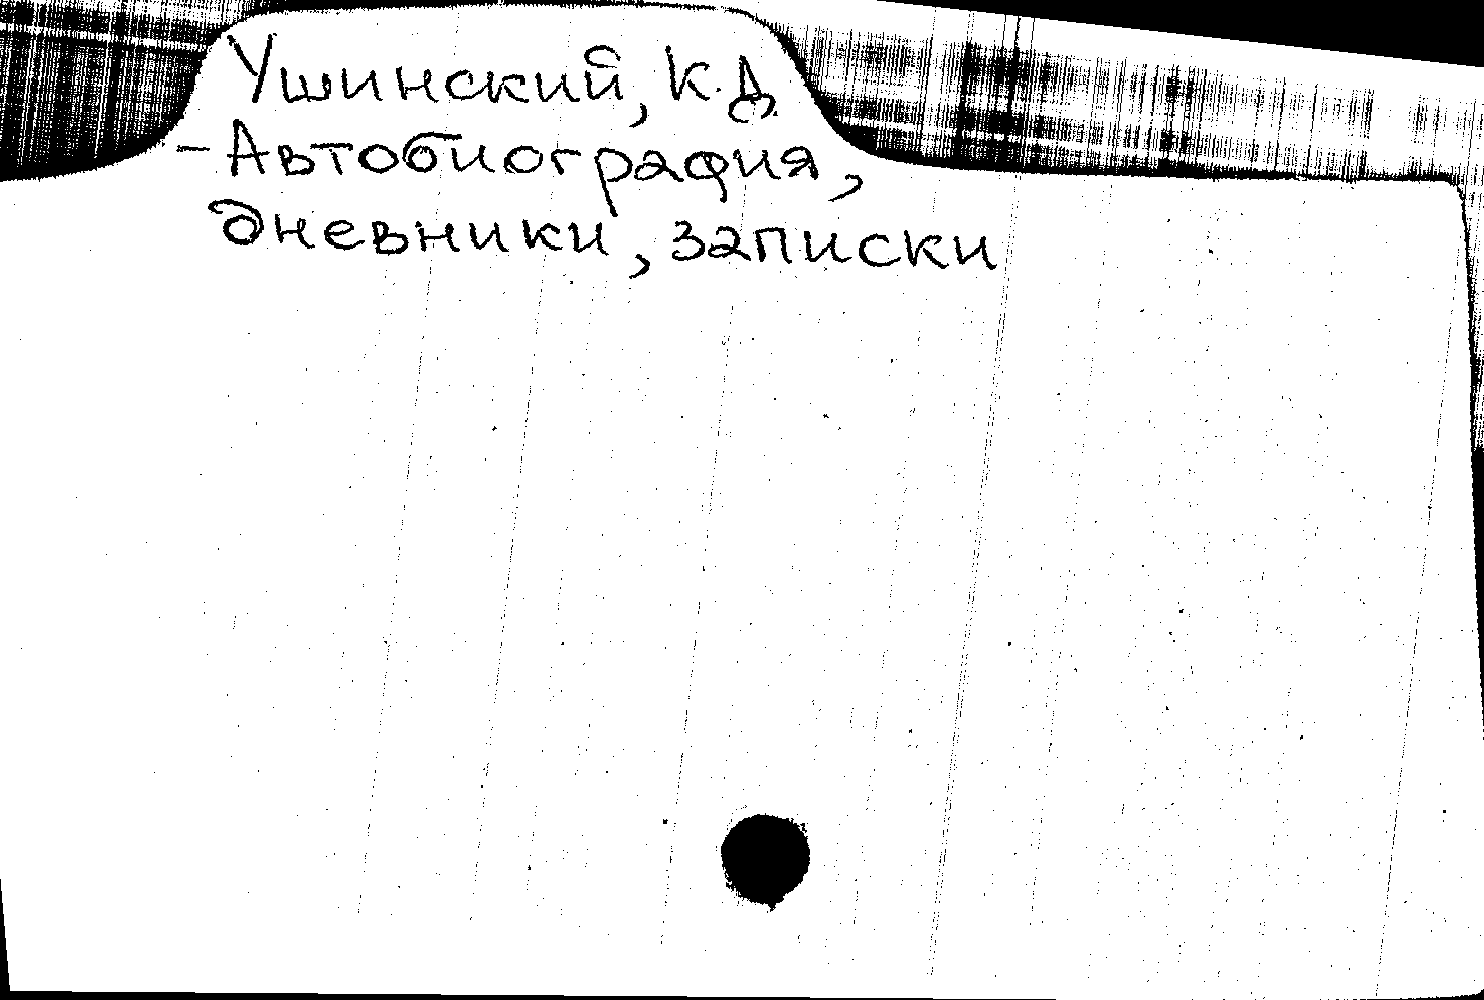 Ушинский, К.Д.
- Автобиография,
дневники, записки